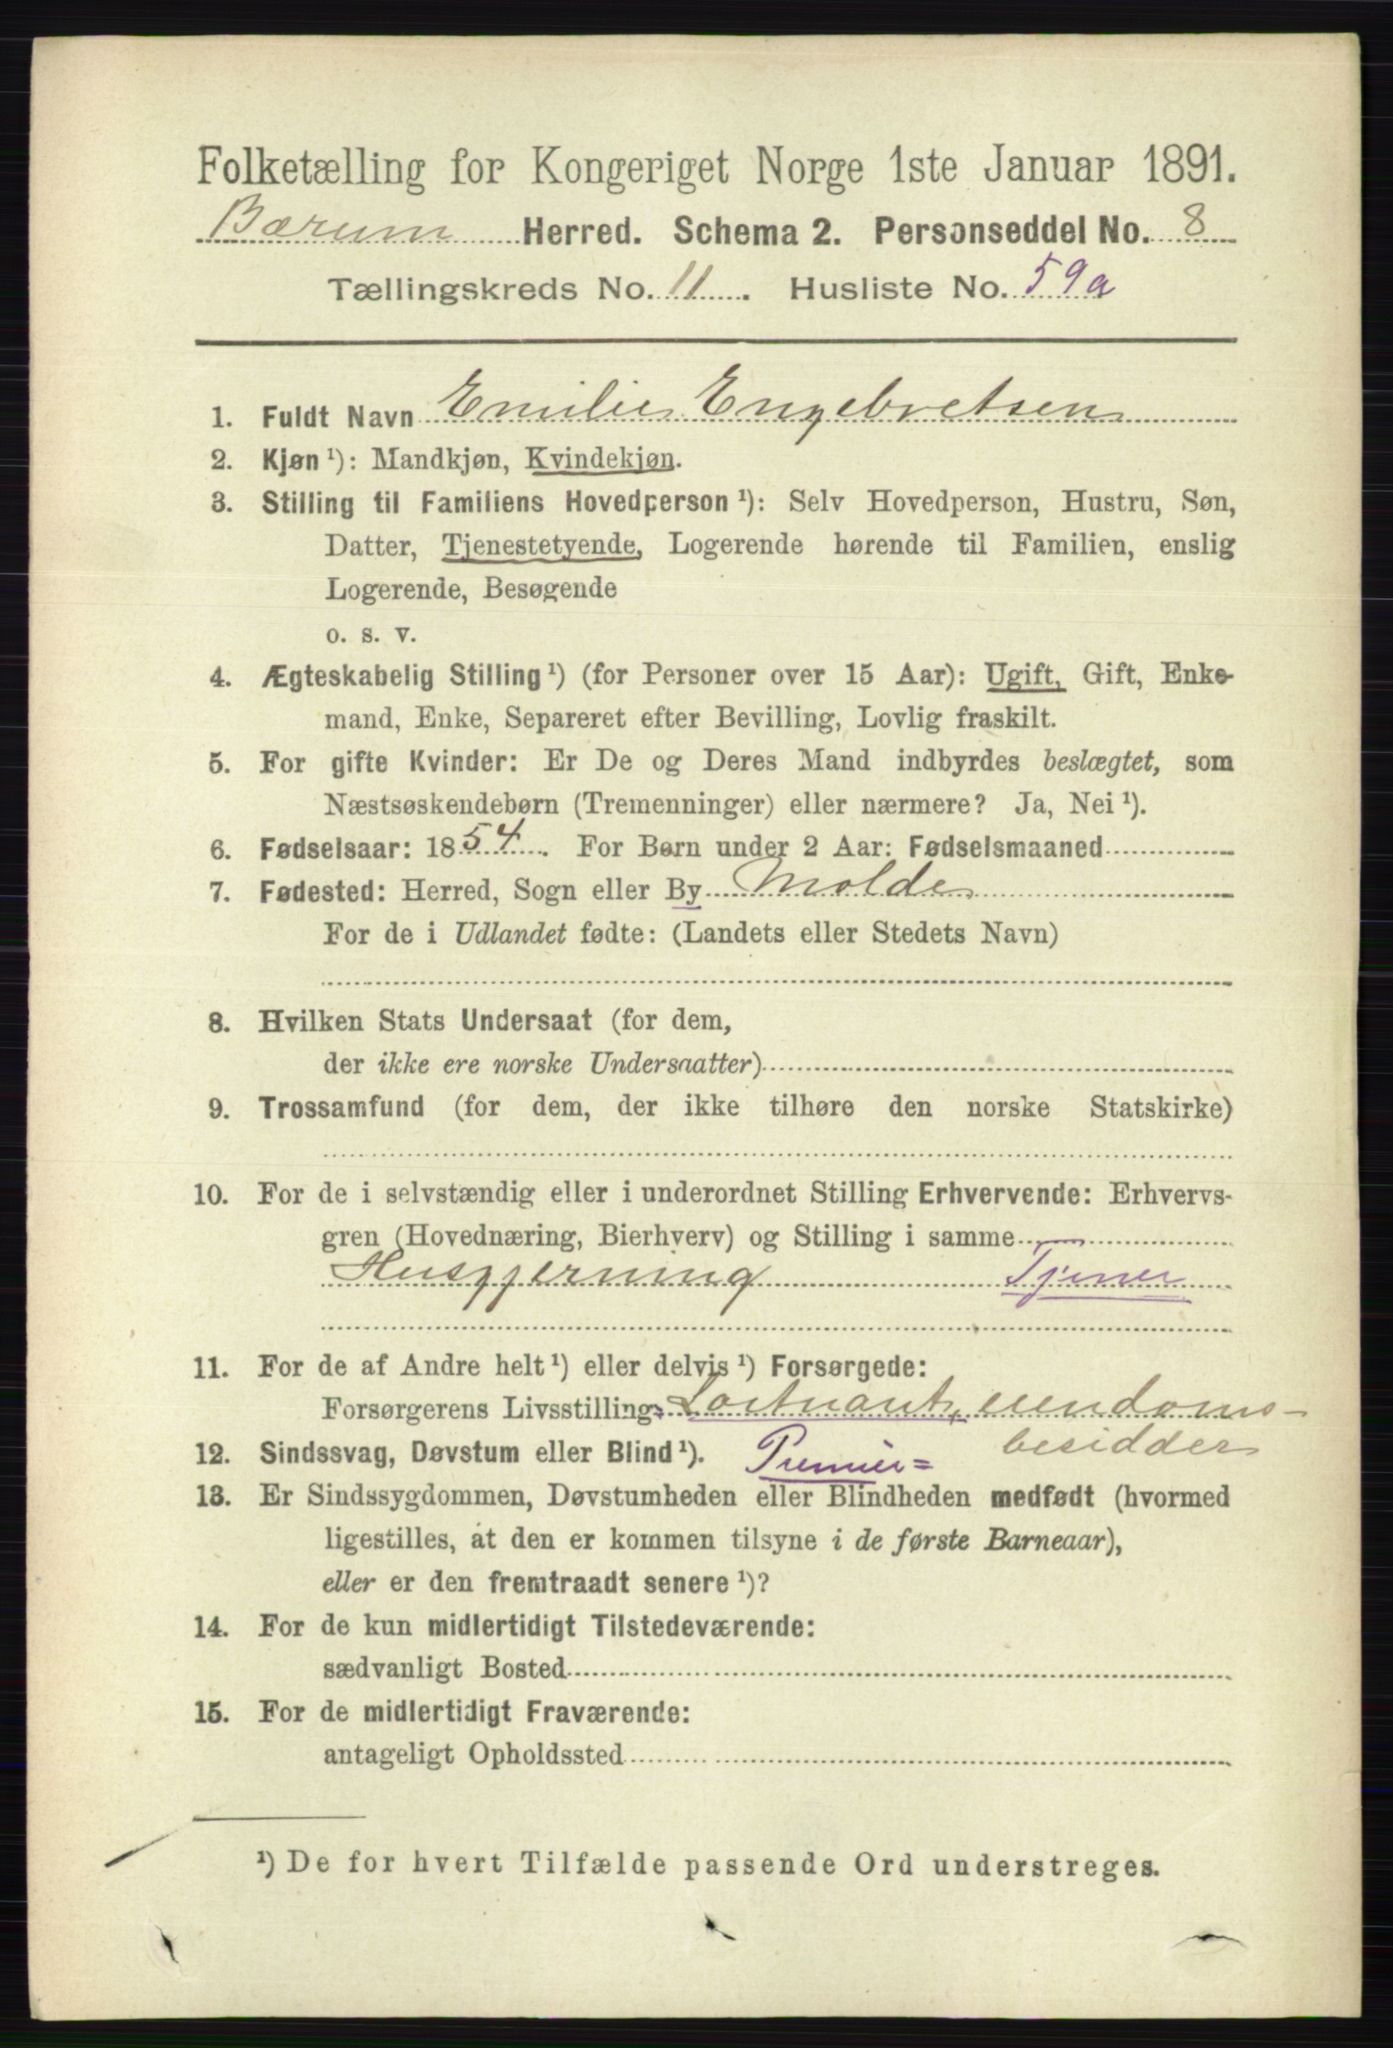 Folketælling for Kongeriget Norge 1ste Januar 1891.
Bærum Herred. Schema 2. Personseddel No. 8
Tællingskreds No. 11. Husliste No. 59a
1. Fuldt Navn Emilie Engebretsen
2. Kjøn ¹): Mandkjøn, Kvindekjøn.
3. Stilling til Familiens Hovedperson ¹): Selv Hovedperson, Hustru, Søn,
Datter, Tjenestetyende, Logerende hørende til Familien, enslig
Logerende, Besøgende
o. s. v.
4. Ægteskabelig Stilling ¹) (for Personer over 15 Aar): Ugift, Gift, Enke-
mand, Enke, Separeret efter Bevilling, Lovlig fraskilt.
5. For gifte Kvinder: Er De og Deres Mand indbyrdes beslægtet, som
Næstsøskendebørn (Tremenninger) eller nærmere? Ja, Nei ¹).
6. Fødselsaar: 1854. For Børn under 2 Aar: Fødselsmaaned
7. Fødested: Herred, Sogn eller By Molde
For de i Udlandet fødte: (Landets eller Stedets Navn)
8. Hvilken Stats Undersaat (for dem,
der ikke ere norske Undersaatter)
9. Trossamfund (for dem, der ikke tilhøre den norske Statskirke)
10. For de i selvstændig eller i underordnet Stilling Erhvervende: Erhvervs-
gren (Hovednæring, Bierhverv) og Stilling i samme
Husgjerning Tjener
11. For de af Andre helt ¹) eller delvis ¹) Forsørgede:
Forsørgerens Livsstilling: Loitnant, eiendoms-
besidder
12. Sindssvag, Døvstum eller Blind ¹). Premier=
13. Er Sindssygdommen, Døvstumheden eller Blindheden medfødt (hvormed
ligestilles, at den er kommen tilsyne i de første Barneaar),
eller er den fremtraadt senere ¹)?
14. For de kun midlertidigt Tilstedeværende:
sædvanligt Bosted
15. For de midlertidigt Fraværende:
antageligt Opholdssted
¹) De for hvert Tilfælde passende Ord understreges.